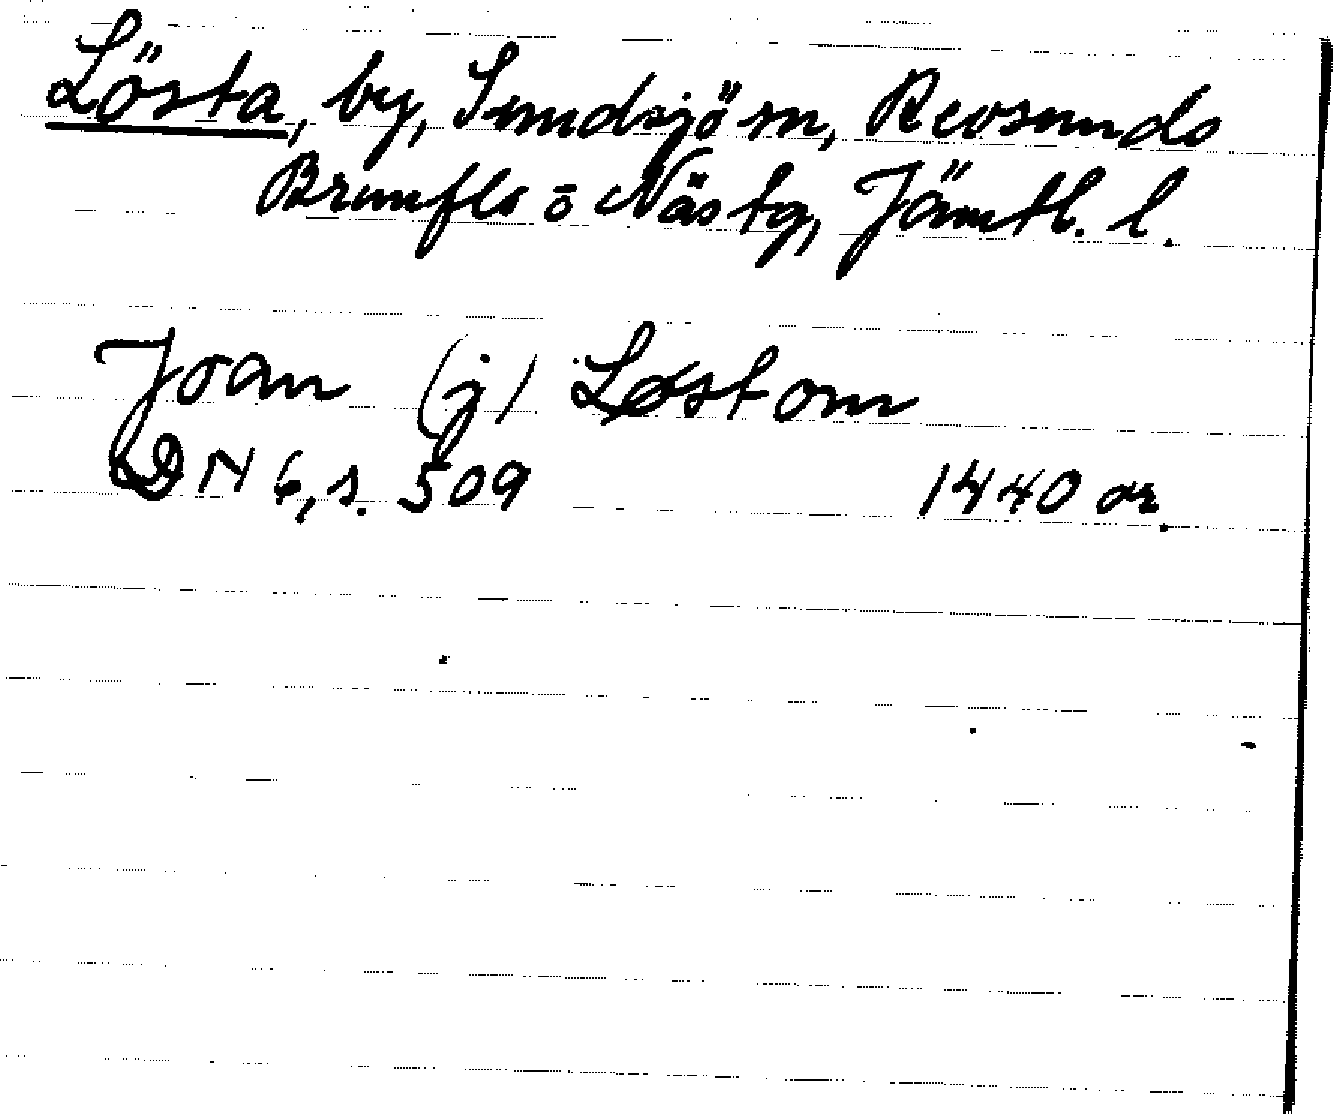 Lösta, by, Sundsjö sn, Revsunds
Brunflo o Näs tg, Jämtl. l.
Joan (j) Løstom
DN 6, s. 509 1440 or.